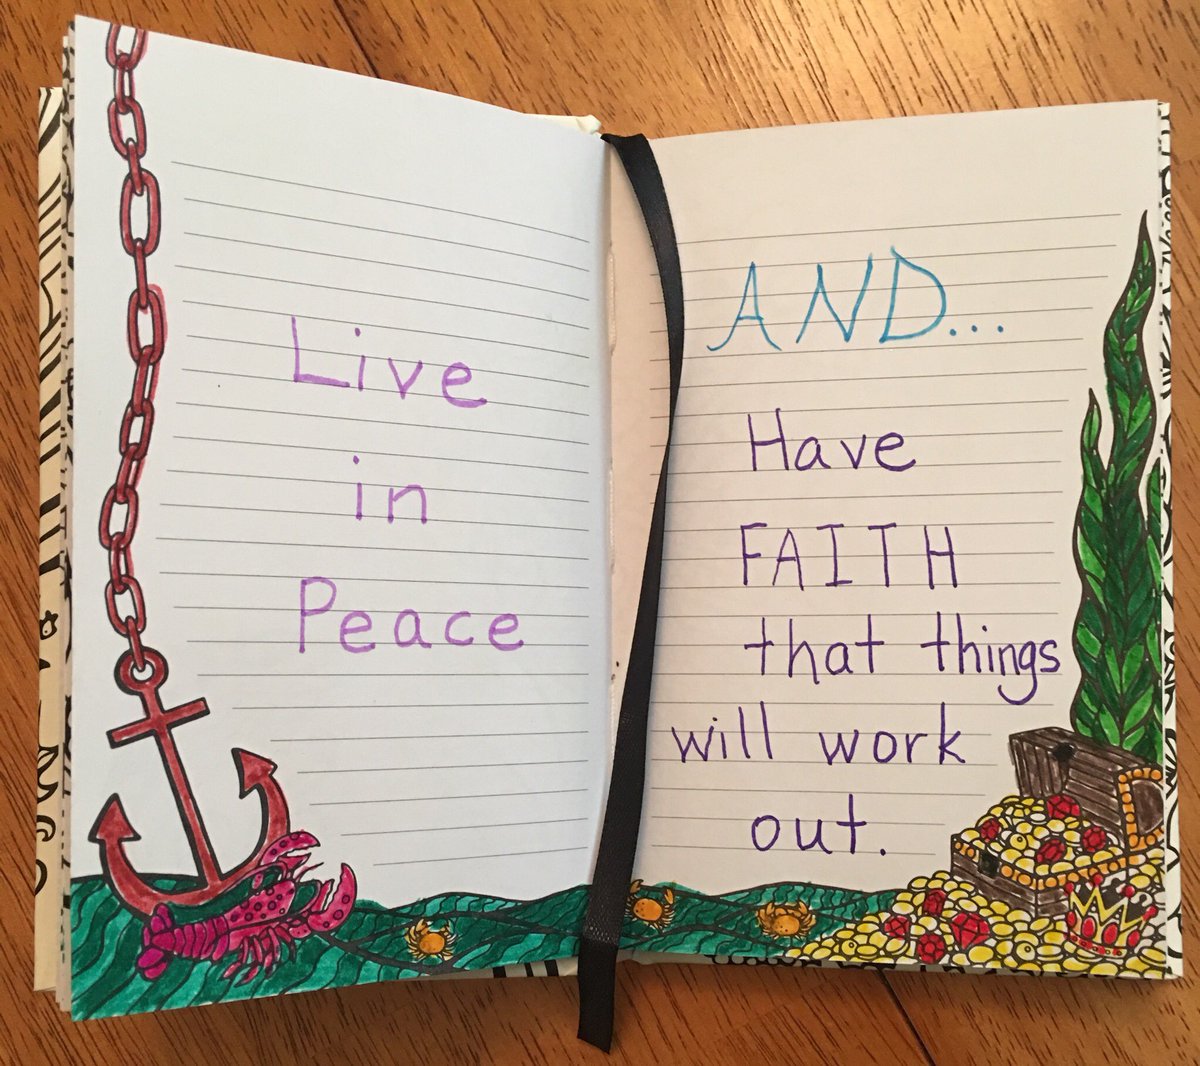 Live
in
Peace
AND...
Have
FAITH
that things
will work
out.